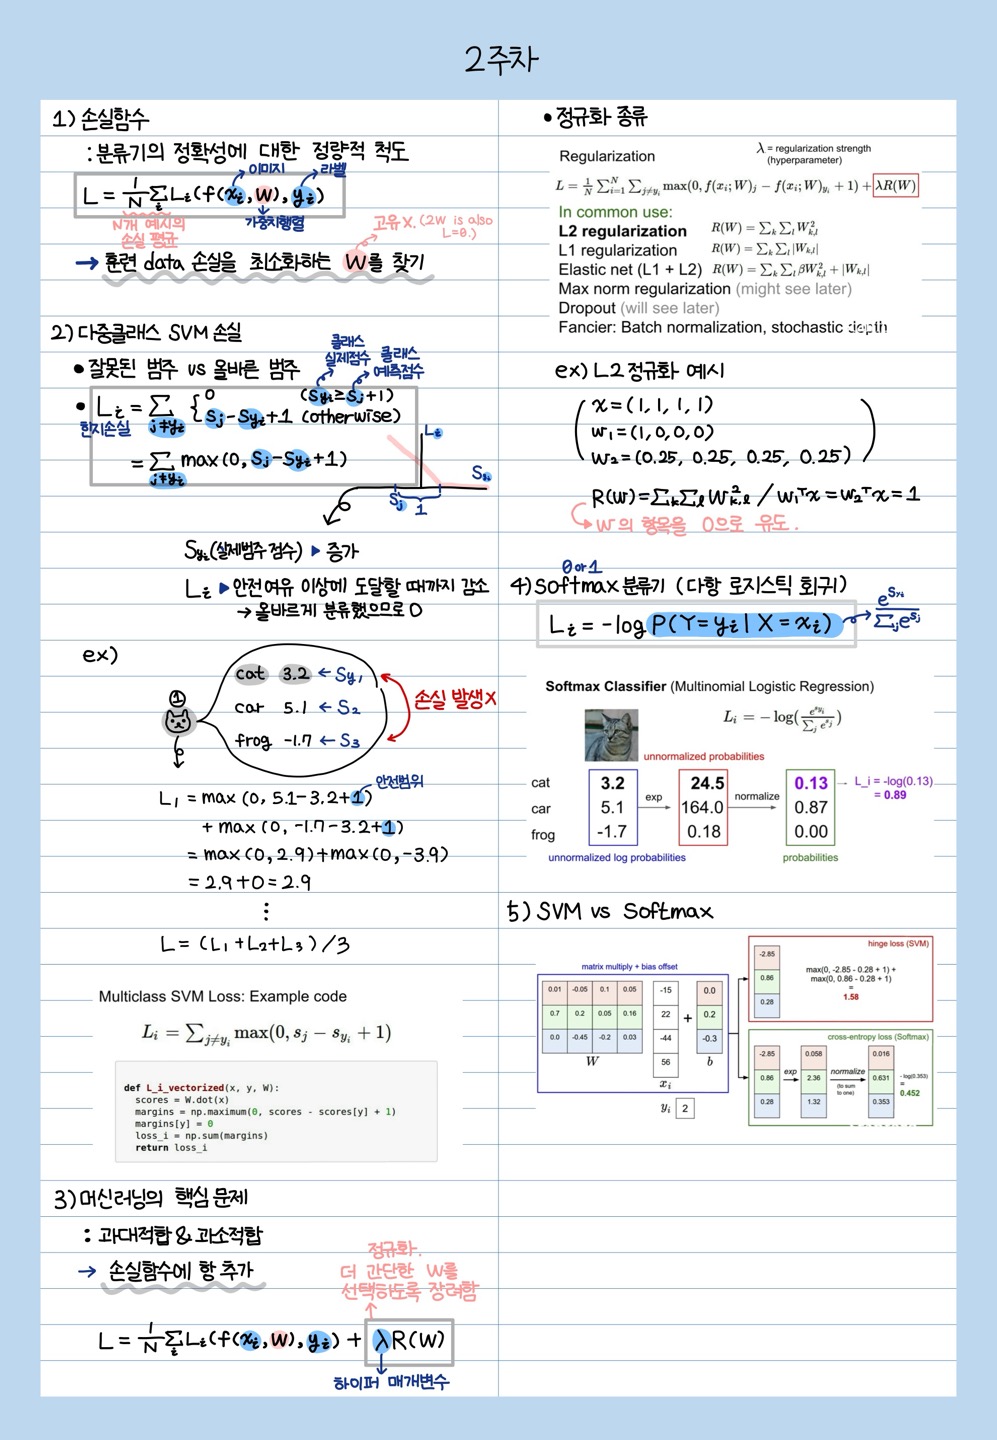 2주차
1) 손실함수
: 분류기의 정확성에 대한 정량적 척도
이미지
라벨
L = 1/N Σ_i L_i(f(x_i, W), y_i)
N개 예시의
손실 평균
가중치행렬
고유 X. (2W is also
L=0.)
→ 훈련 data 손실을 최소화하는 W를 찾기
2) 다중클래스 SVM 손실
• 잘못된 범주 vs 올바른 범주
클래스
실제점수
클래스
예측점수
• L_i = Σ_{j≠y_i} { 0 (S_{y_i} ≥ S_j + 1)
S_j - S_{y_i} + 1 (otherwise)
힌지손실
= Σ_{j≠y_i} max(0, S_j - S_{y_i} + 1)
L_i
S_{y_i}
S_j 1
S_{y_i}(실제범주 점수) ▶ 증가
L_i ▶ 안전여유 이상에 도달할 때까지 감소
→ 올바르게 분류했으므로 0
ex)
①
cat 3.2 ← S_{y_1}
car 5.1 ← S_2
frog -1.7 ← S_3
손실 발생 X
안전범위
L_1 = max(0, 5.1-3.2+1)
+ max(0, -1.7-3.2+1)
= max(0, 2.9) + max(0, -3.9)
= 2.9+0 = 2.9
⋮
L = (L_1 + L_2 + L_3) / 3
Multiclass SVM Loss: Example code
L_i = Σ_{j≠y_i} max(0, s_j - s_{y_i} + 1)
def L_i_vectorized(x, y, W):
scores = W.dot(x)
margins = np.maximum(0, scores - scores[y] + 1)
margins[y] = 0
loss_i = np.sum(margins)
return loss_i
3) 머신러닝의 핵심 문제
: 과대적합 & 과소적합
→ 손실함수에 항 추가
정규화.
더 간단한 W를
선택하도록 장려함
L = 1/N Σ_i L_i(f(x_i, W), y_i) + λR(W)
하이퍼 매개변수
• 정규화 종류
Regularization
λ = regularization strength
(hyperparameter)
L = 1/N Σ_{i=1}^N Σ_{j≠y_i} max(0, f(x_i; W)_j - f(x_i; W)_{y_i} + 1) + λR(W)
In common use:
L2 regularization R(W) = Σ_k Σ_l W_{k,l}^2
L1 regularization R(W) = Σ_k Σ_l |W_{k,l}|
Elastic net (L1 + L2) R(W) = Σ_k Σ_l βW_{k,l}^2 + |W_{k,l}|
Max norm regularization (might see later)
Dropout (will see later)
Fancier: Batch normalization, stochastic depth
ex) L2 정규화 예시
x = (1, 1, 1, 1)
w_1 = (1, 0, 0, 0)
w_2 = (0.25, 0.25, 0.25, 0.25)
R(w) = Σ_k Σ_l W_{k,l}^2 / w_1^T x = w_2^T x = 1
W의 항목을 0으로 유도.
0 or 1
4) Softmax 분류기 (다항 로지스틱 회귀)
L_i = -log P(Y = y_i | X = x_i) → e^{S_{y_i}} / Σ_j e^{S_j}
Softmax Classifier (Multinomial Logistic Regression)
L_i = -log(e^{s_{y_i}} / Σ_j e^{s_j})
unnormalized probabilities
cat 3.2 24.5 0.13 → L_i = -log(0.13)
= 0.89
car 5.1 exp 164.0 normalize 0.87
frog -1.7 0.18 0.00
unnormalized log probabilities probabilities
5) SVM vs Softmax
matrix multiply + bias offset
0.01 -0.05 0.1 0.05
0.7 0.2 0.05 0.16
0.0 -0.45 -0.2 0.03
W
-15
22
-44
56
x_i
+
0.0
0.2
-0.3
b
y_i 2
hinge loss (SVM)
-2.85
0.86
0.28
max(0, -2.85 - 0.28 + 1) +
max(0, 0.86 - 0.28 + 1)
=
1.58
cross-entropy loss (Softmax)
-2.85 0.058 0.016
0.86 exp 2.36 normalize 0.631
(to sum
to one)
0.28 1.32 0.353
- log(0.353)
=
0.452